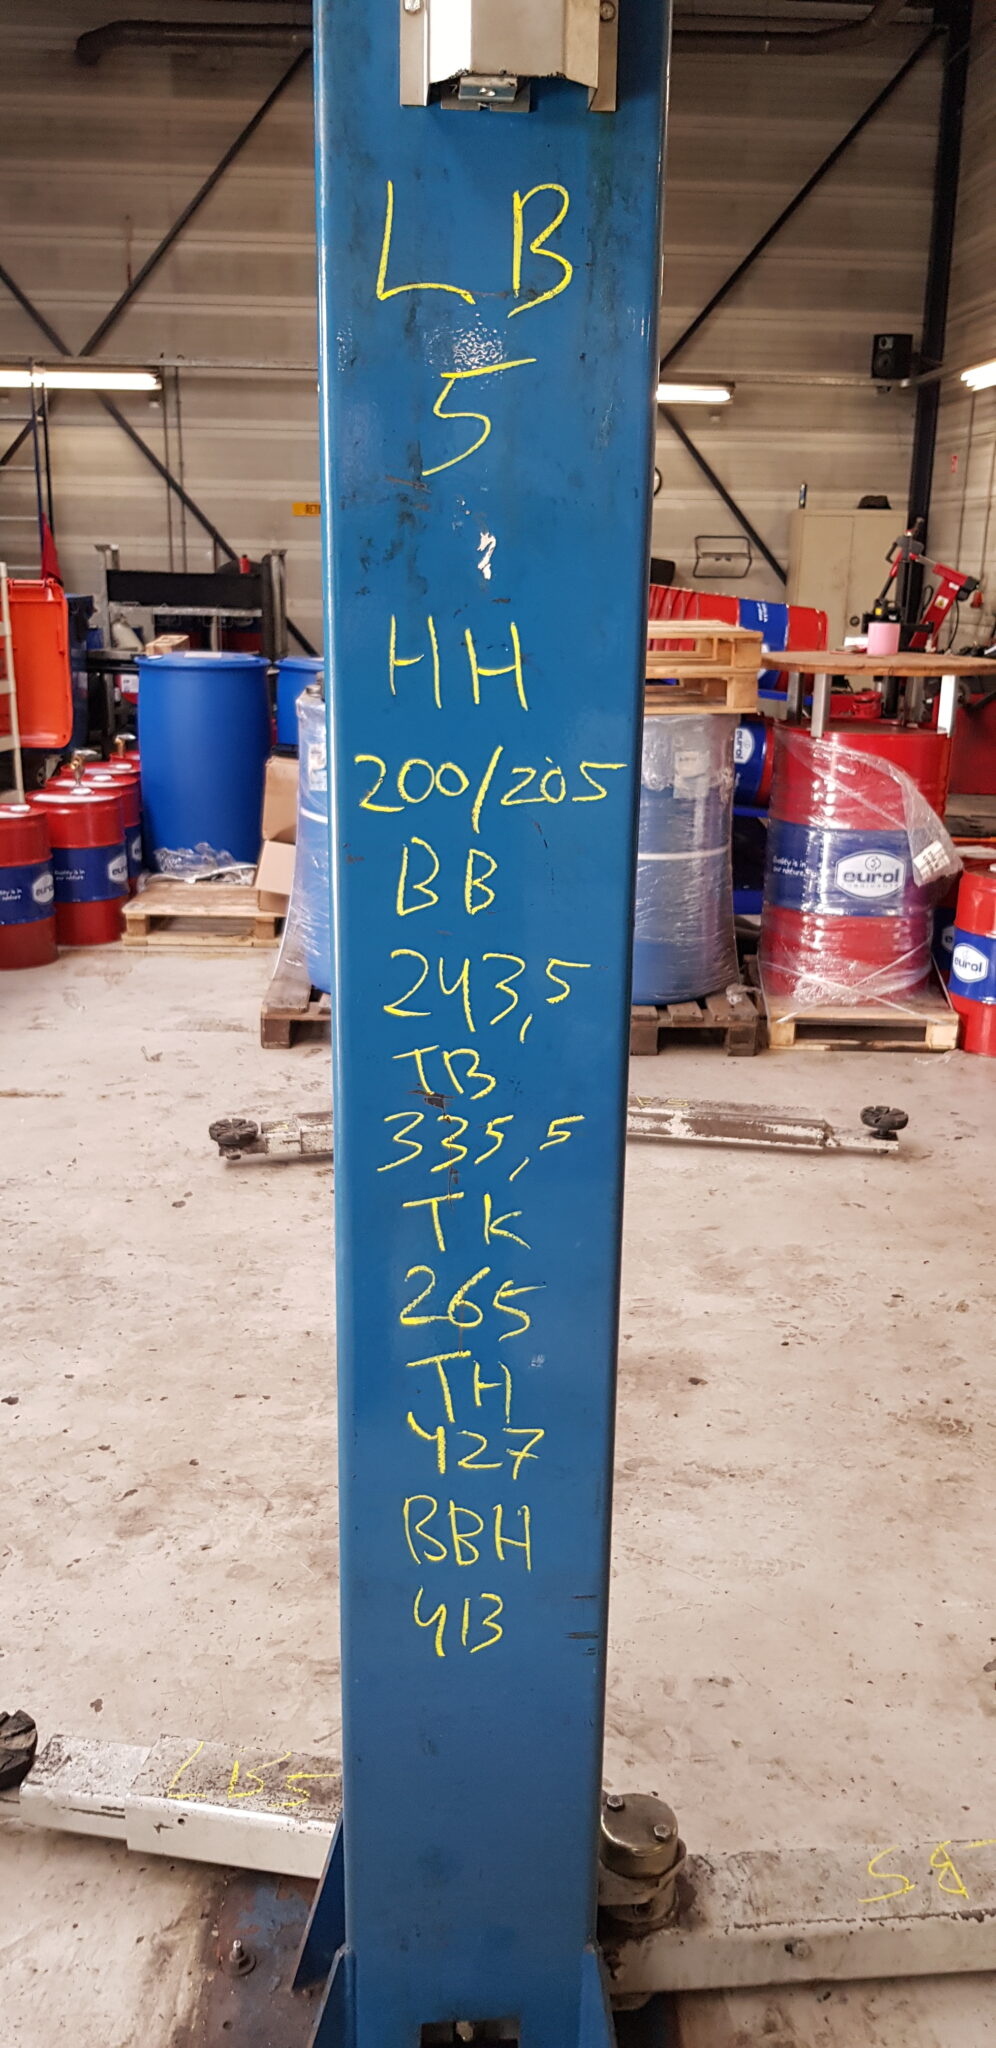 LB
5
HH
200/205
BB
243,5
TB
335,5
TK
265
TH
427
BBH
413
LB5
5B
eurol
LUBRICANTS
Quality is in
our nature.
eurol
eurol
eurol